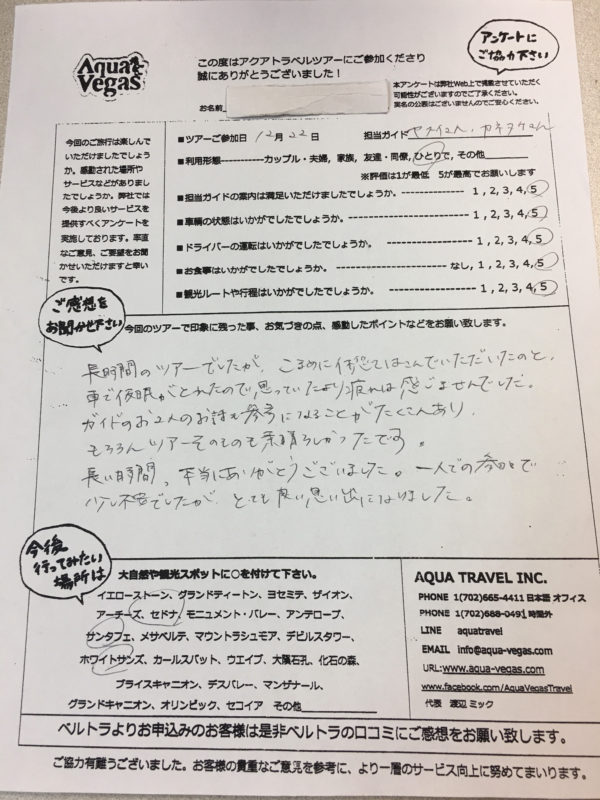 Aqua Vegas
この度はアクアトラベルツアーにご参加くださり
誠にありがとうございました！
アンケートに
ご協力下さい
本アンケートは弊社Web上で掲載させていただく
可能性がございますのでご了承ください。
実名の公表はございませんのでご安心ください。
お名前
今回のご旅行は楽しんで
いただけましたでしょう
か。感動された場所や
サービスなどがありまし
たでしょうか。弊社では
今後より良いサービスを
提供すべくアンケートを
実施しております。率直
なご意見、ご要望をお聞
かせいただけますと幸い
です。
■ツアーご参加日 12月 22日 担当ガイド
■利用形態------------カップル・夫婦, 家族, 友達・同僚, ひとりで, その他
※評価は1が最低 5が最高でお願いします
■担当ガイドの案内は満足いただけましたでしょうか。 1, 2, 3, 4, 5
■車輌の状態はいかがでしたでしょうか。 1, 2, 3, 4, 5
■ドライバーの運転はいかがでしたでしょうか。 1, 2, 3, 4, 5
■お食事はいかがでしたでしょうか。 なし, 1, 2, 3, 4, 5
■観光ルートや行程はいかがでしたでしょうか。 1, 2, 3, 4, 5
ご感想を
お聞かせ下さい
今回のツアーで印象に残った事、お気づきの点、感動したポイントなどをお願い致します。
長時間のツアーでしたが、こまめに休憩をはさんでいただいたのと、
車で仮眠がとれたので思っていたより疲れは感じませんでした。
ガイドのお2人のお話も参考になることがたくさんあり、
もちろんツアーそのものも素晴らしかったです。
長い時間、本当にありがとうございました。一人での参加で
少し不安でしたが、とても良い思い出になりました。
今後
行ってみたい
場所は
大自然や観光スポットに○を付けて下さい。
イエローストーン、グランドティートン、ヨセミテ、ザイオン、
アーチーズ、セドナ、モニュメント・バレー、アンテロープ、
サンタフェ、メサベルデ、マウントラシュモア、デビルスタワー、
ホワイトサンズ、カールスバット、ウエイブ、大隕石孔、化石の森、
ブライスキャニオン、デスバレー、マンザナール、
グランドキャニオン、オリンピック、セコイア その他
AQUA TRAVEL INC.
PHONE 1(702)665-4411 日本語 オフィス
PHONE 1(702)688-0491 時間外
LINE aquatravel
EMAIL info@aqua-vegas.com
URL:www.aqua-vegas.com
www.facebook.com/AquaVegasTravel
代表 渡辺 ミック
ベルトラよりお申込みのお客様は是非ベルトラの口コミにご感想をお願い致します。
ご協力有難うございました。お客様の貴重なご意見を参考に、より一層のサービス向上に努めてまいります。